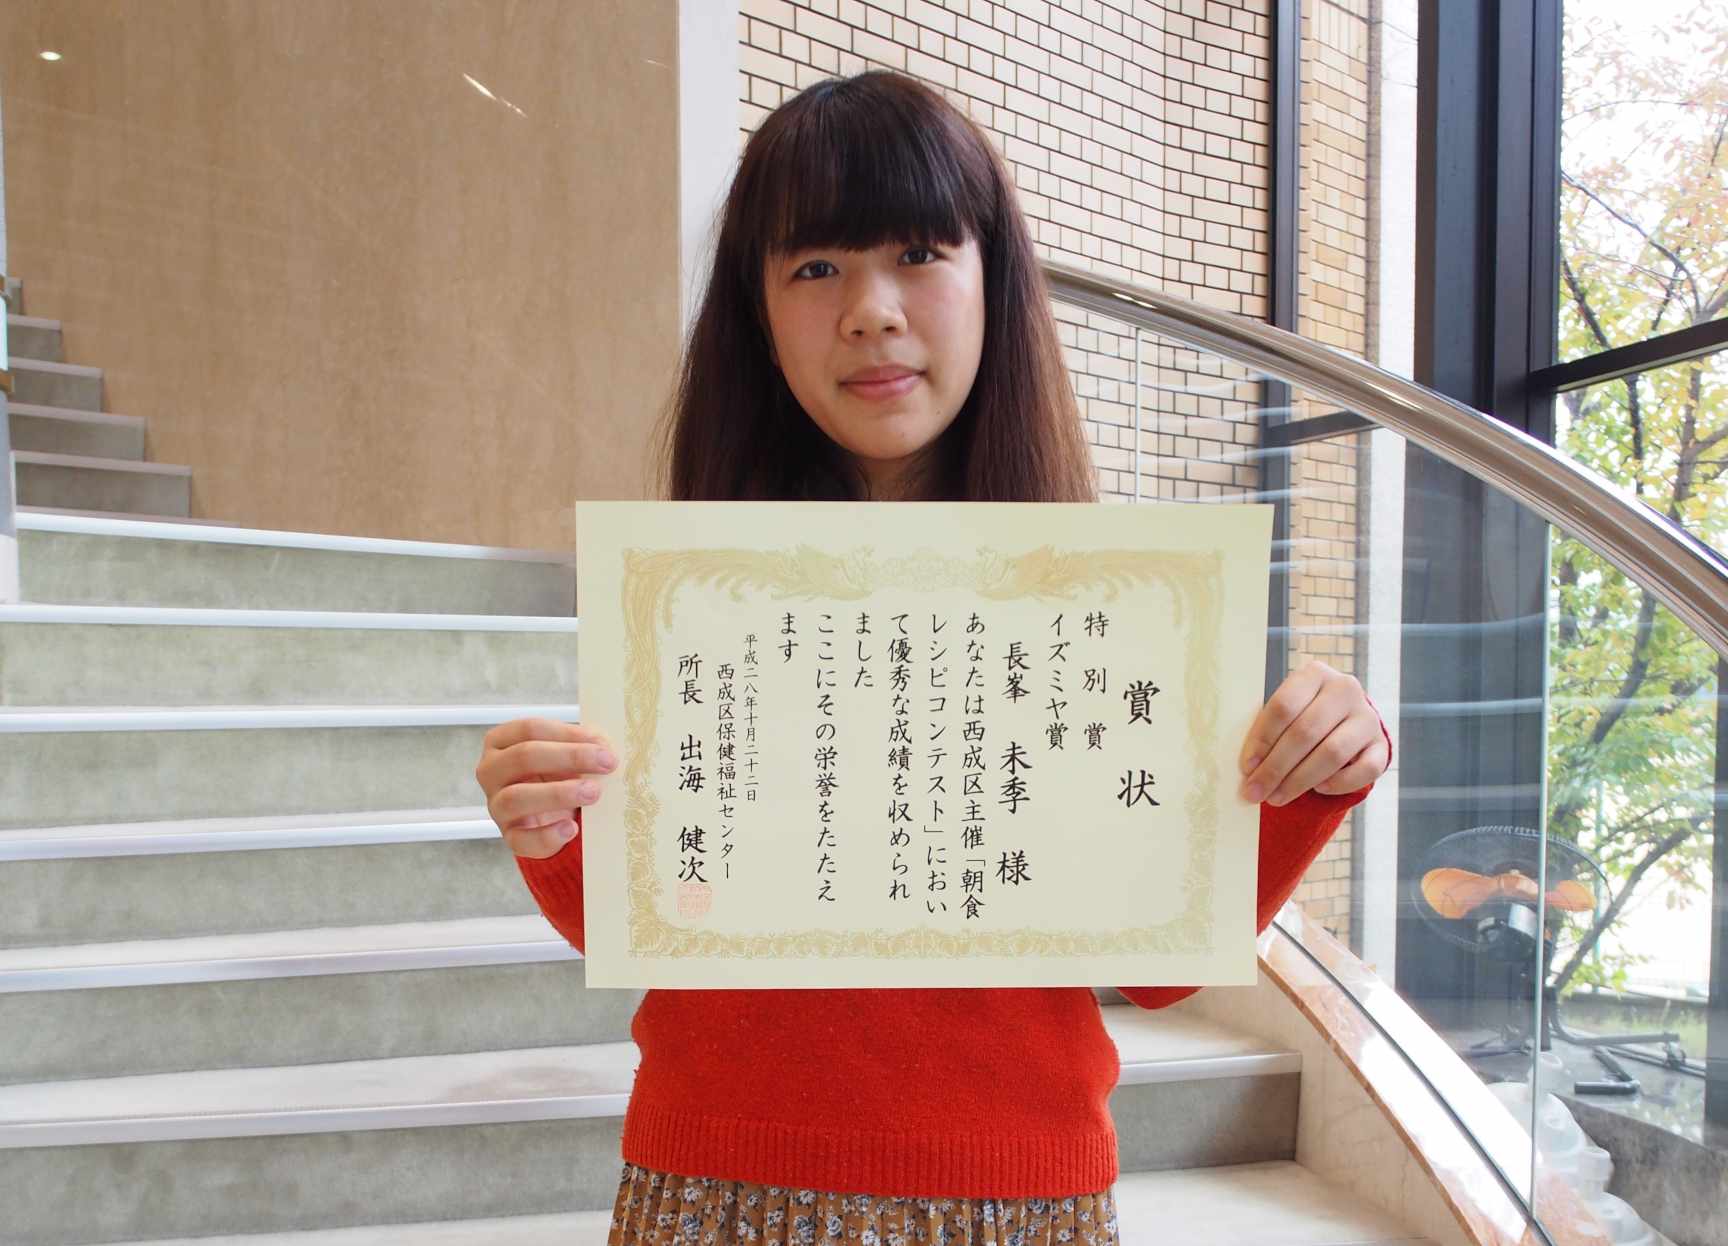 賞状
特別賞
イズミヤ賞
長峯 未季 様
あなたは西成区主催「朝食
レシピコンテスト」におい
て優秀な成績を収められ
ました
ここにその栄誉をたたえ
ます
平成二八年十月二十二日
西成区保健福祉センター
所長 出海 健次